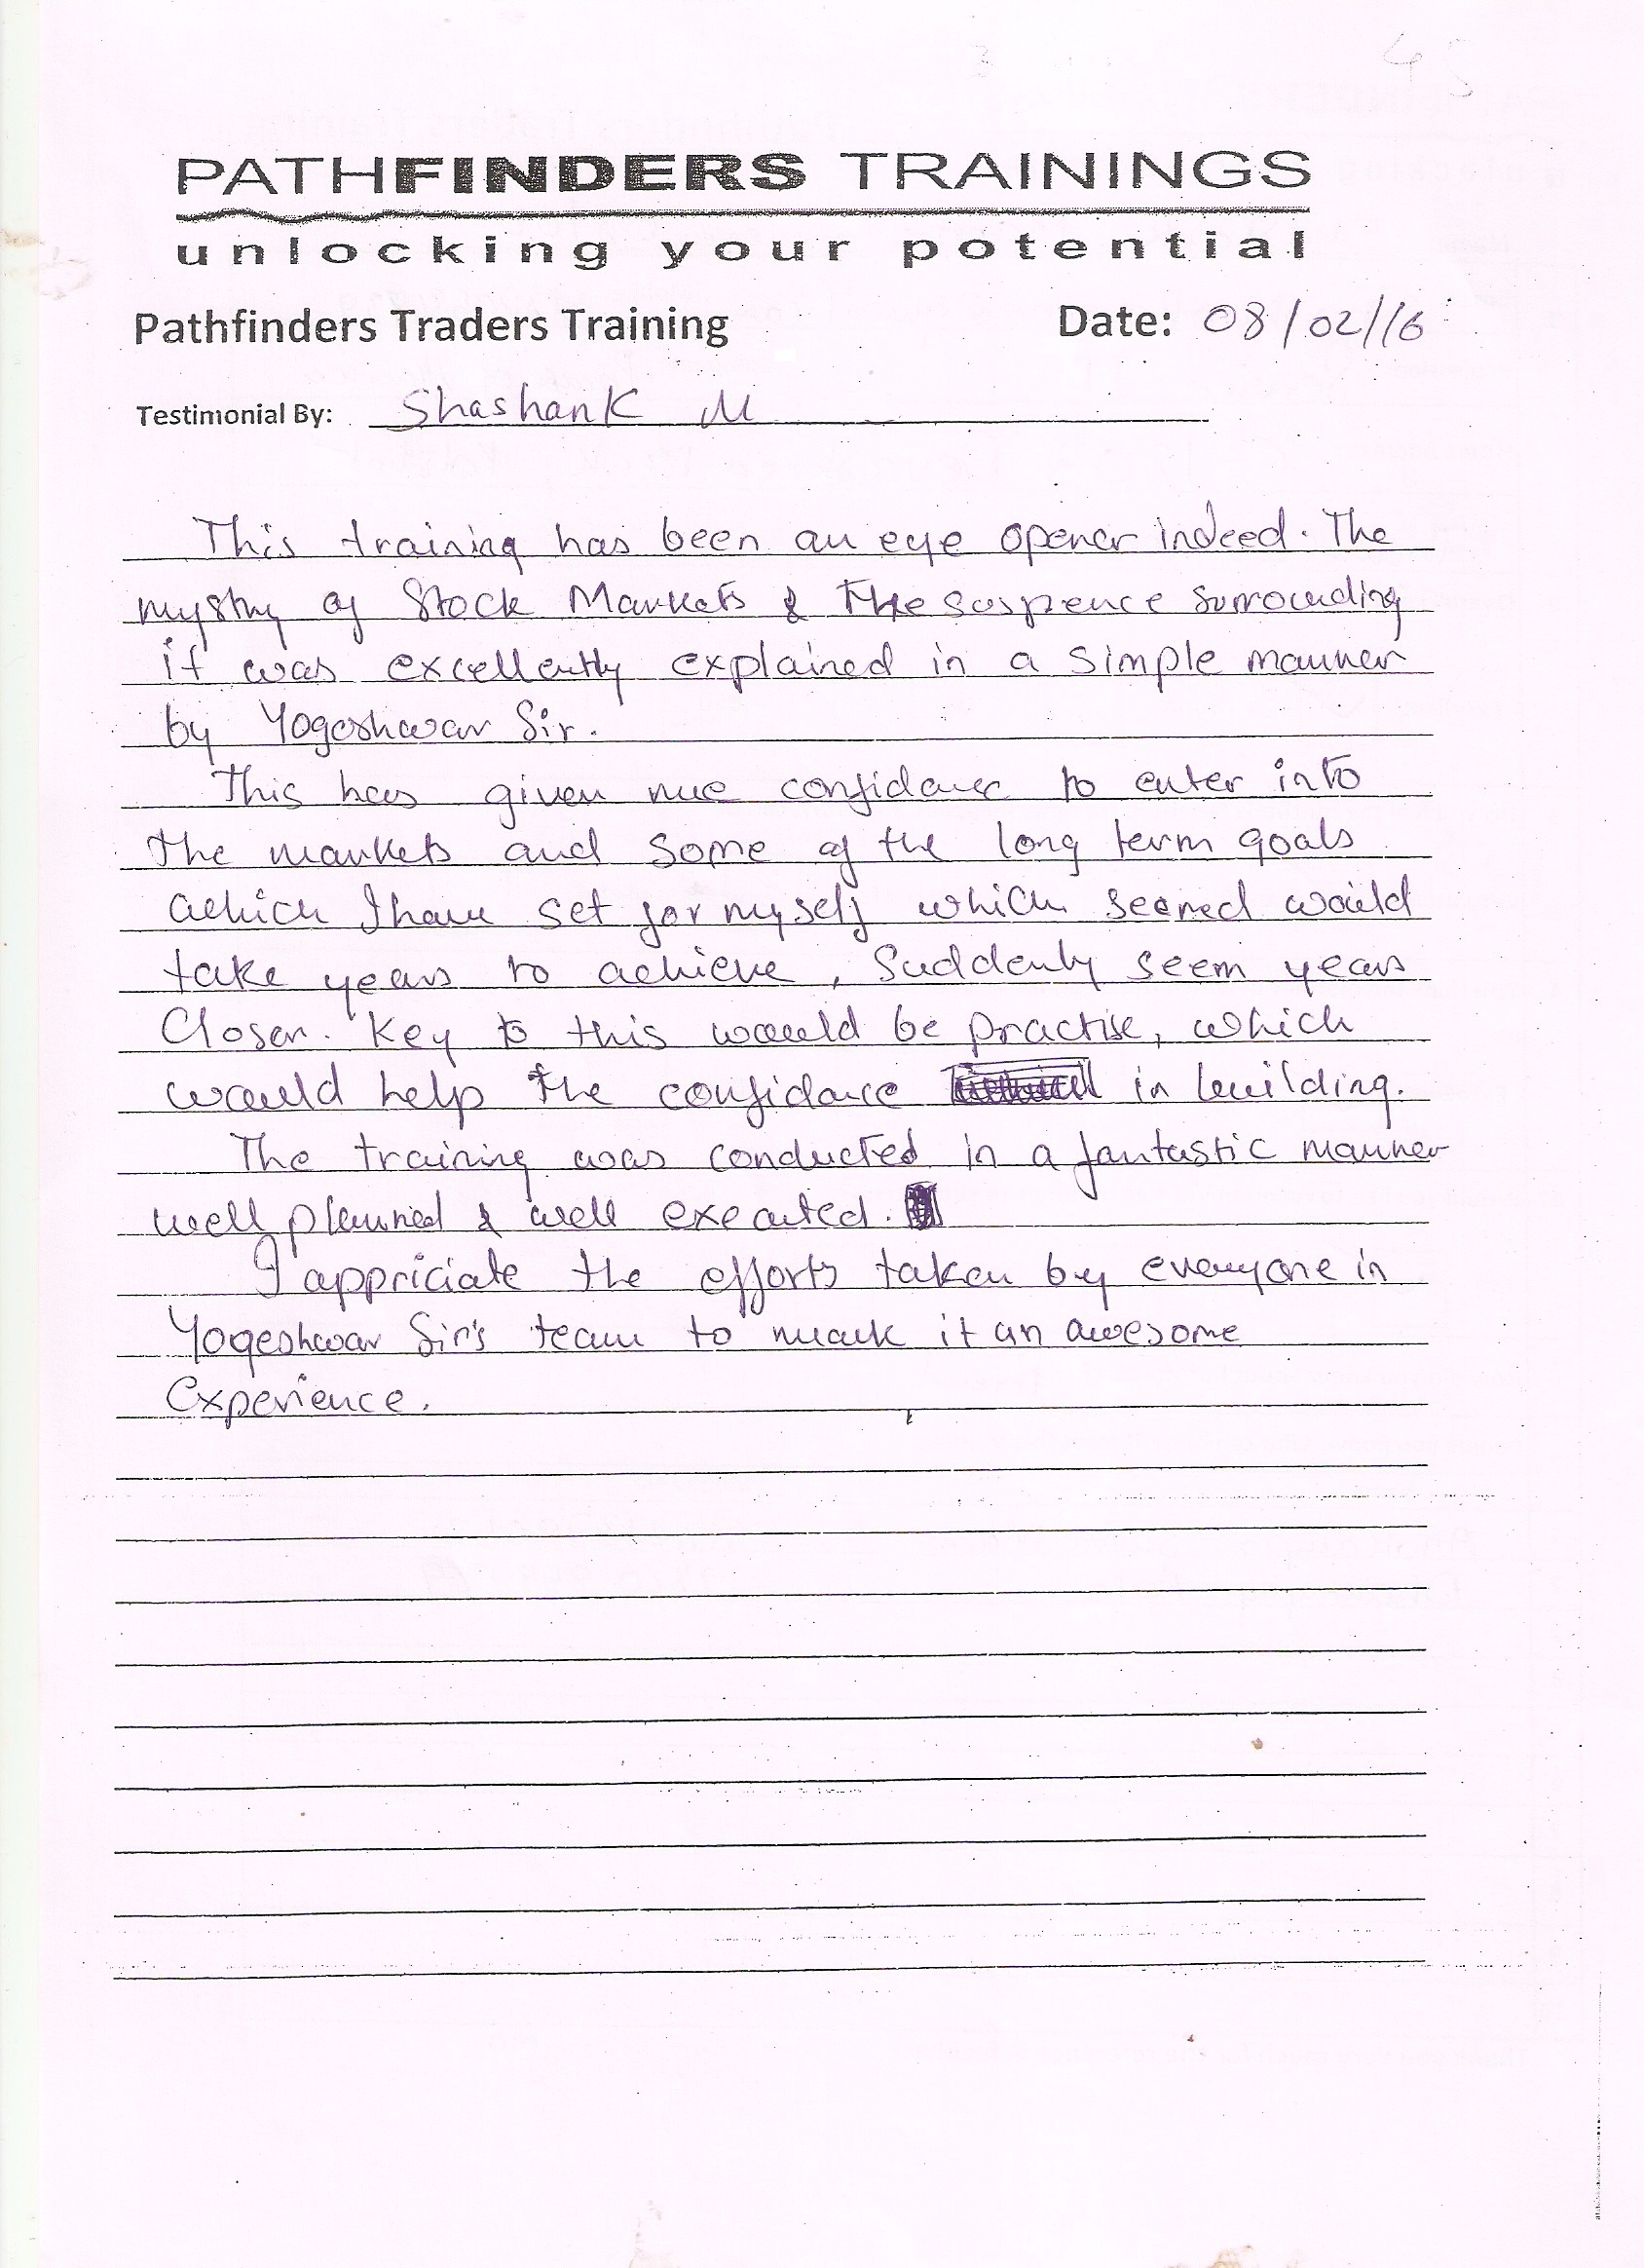 45
PATHFINDERS TRAININGS
unlocking your potential
Pathfinders Traders Training Date: 08/02/16
Testimonial By: Shashank M
This training has been an eye opener indeed. The
mystry of Stock Markets & the suspence surrounding
it was excellently explained in a simple manner
by Yogeshwar Sir.
This has given me confidance to enter into
the markets and some of the long term goals
which I have set for myself which seemed would
take years to achieve, Suddenly seem years
Closer. Key to this would be practise, which
would help the confidance in building.
The training was conducted in a fantastic manner
well planned & well executed.
I appriciate the efforts taken by everyone in
Yogeshwar Sir's team to mark it an awesome
Experience.